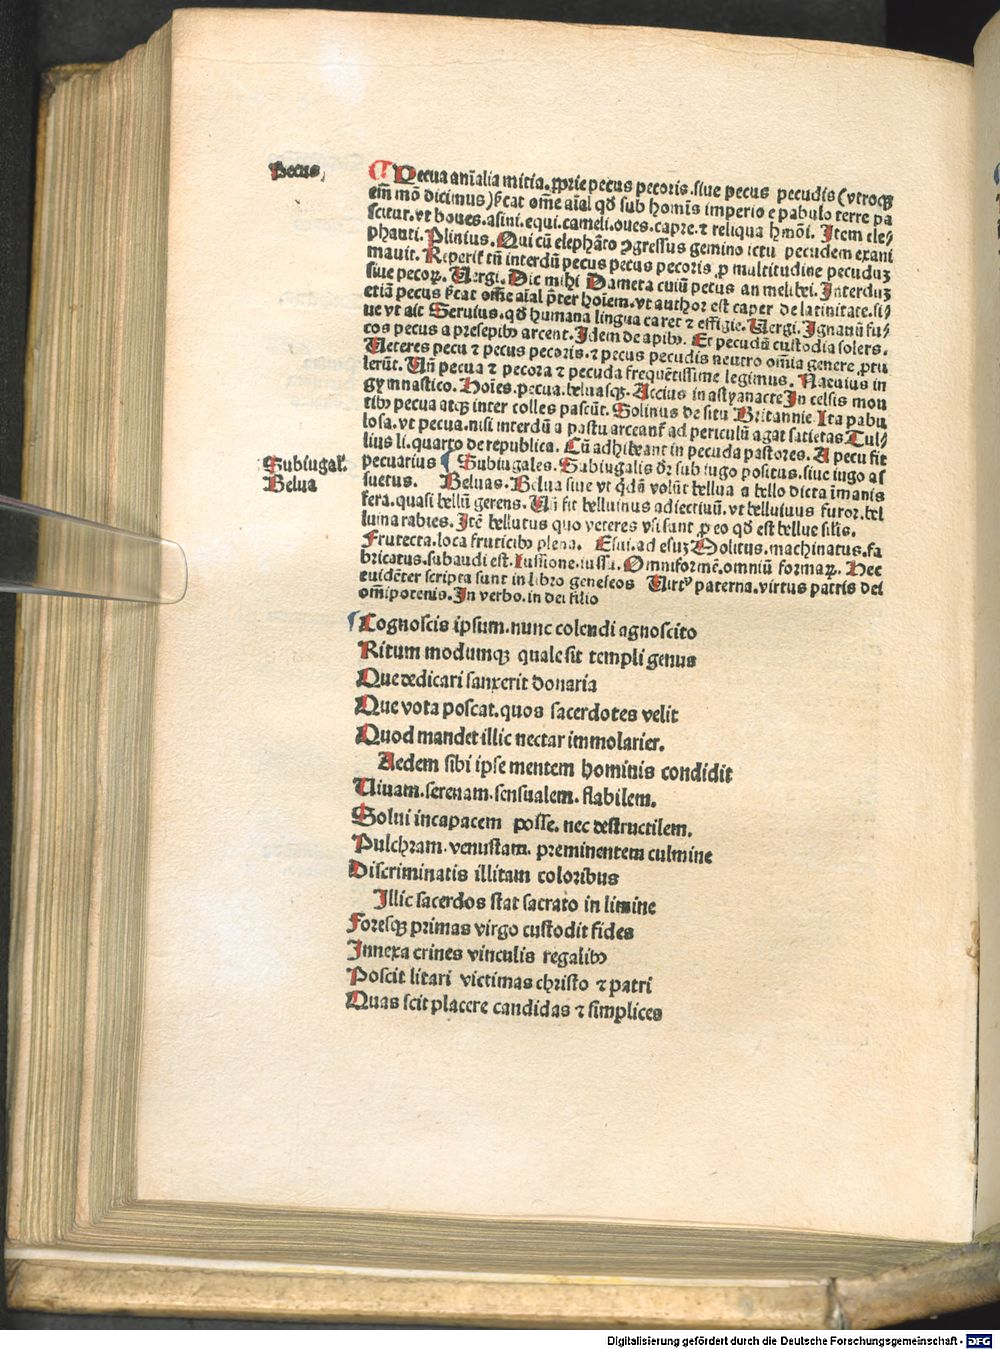 Pecus,
¶ Pecua aīalia mitia. ꝓprie pecus pecoris. siue pecus pecudis (vtroqꝫ
eīm mō dicimus) sͥcat om̄e aīal qđ sub hominis imperio e pabulo terre pa
scitur. vt boues. asini. equi. cameli. oues. capre. ⁊ reliqua hmōi. Item ele⸗
phanti. Plinius. Qui cū elephāto ꝯgressus gemino ictu pecudem exani
mauit. Reperit᷑ tn̄ interdū pecus pecus pecoris ꝓ multitudine pecuduꝫ
siue pecoꝝ. Uergi. Dic mihi Dameta cuiū pecus an melibei. Interduꝫ
etiā pecus sͥcat om̄e aīal p̄ter hoīem. vt author est caper de latinitate. si⸗
ue vt ait Seruius. qđ humana lingua caret ⁊ effigie. Uergi. Ignauū fu⸗
cos pecus a presepibꝰ arcent. Idem de apibꝰ. Et pecudū custodia solers.
Ueteres pecu ⁊ pecus pecoris. ⁊ pecus pecudis neutro om̄ia genere ꝓtu
lerūt. Uñ pecua ⁊ pecora ⁊ pecuda frequētissime legimus. Naeuius in
gymnastico. Hoīes. pecua. beluasqꝫ. Accius in astyanacte In celsis mon
tibꝰ pecua atqꝫ inter colles pascūt. Solinus de situ Britannie. Ita pabu
losa. vt pecua. nisi interdū a pastu arceant᷑ ad periculū agat satietas Tul⸗
lius li. quarto de republica. Cū adhibeant in pecuda pastores. A pecu fit
Subiugal᷑.
pecuarius ¶ Subiugales. Subiugalis dr̄ sub iugo positus. siue iugo as
Belua
suetus. Beluas. Belua siue vt qͥdā volūt bellua a bello dicta īmanis
fera. quasi bellū gerens. Uñ fit belluinus adiectiuū. vt belluiuus furor. bel
luina rabies. Itē bellutus quo veteres vsi sunt ꝓ eo qđ est bellue silis.
Frutecta. loca fruticibꝰ plena. Esui. ad esuꝫ Molitus. machinatus. fa
bricatus. subaudi est. Iussione. iussu. Omniformē. omniū formaꝝ. Hec
euidēter scripta sunt in libro geneseos Uirtꝰ paterna. virtus patris dei
om̄ipotenis. In verbo. in dei filio
¶ Cognoscis ipsum. nunc colendi agnoscito
Ritum modumqꝫ quale sit templi genus
Que dedicari sanxerit donaria
Que vota poscat. quos sacerdotes velit
Quod mandet illic nectar immolarier.
Aedem sibi ipse mentem hominis condidit
Uiuam. serenam. sensualem. flabilem.
Solui incapacem posse. nec destructilem.
Pulchram. venustam. preminentem culmine
Discriminatis illitam coloribus
Illic sacerdos stat sacrato in limine
Foresqꝫ primas virgo custodit fides
Innexa crines vinculis regalibꝰ
Poscit litari victimas christo ⁊ patri
Quas scit placere candidas ⁊ simplices
Digitalisierung gefördert durch die Deutsche Forschungsgemeinschaft - DFG